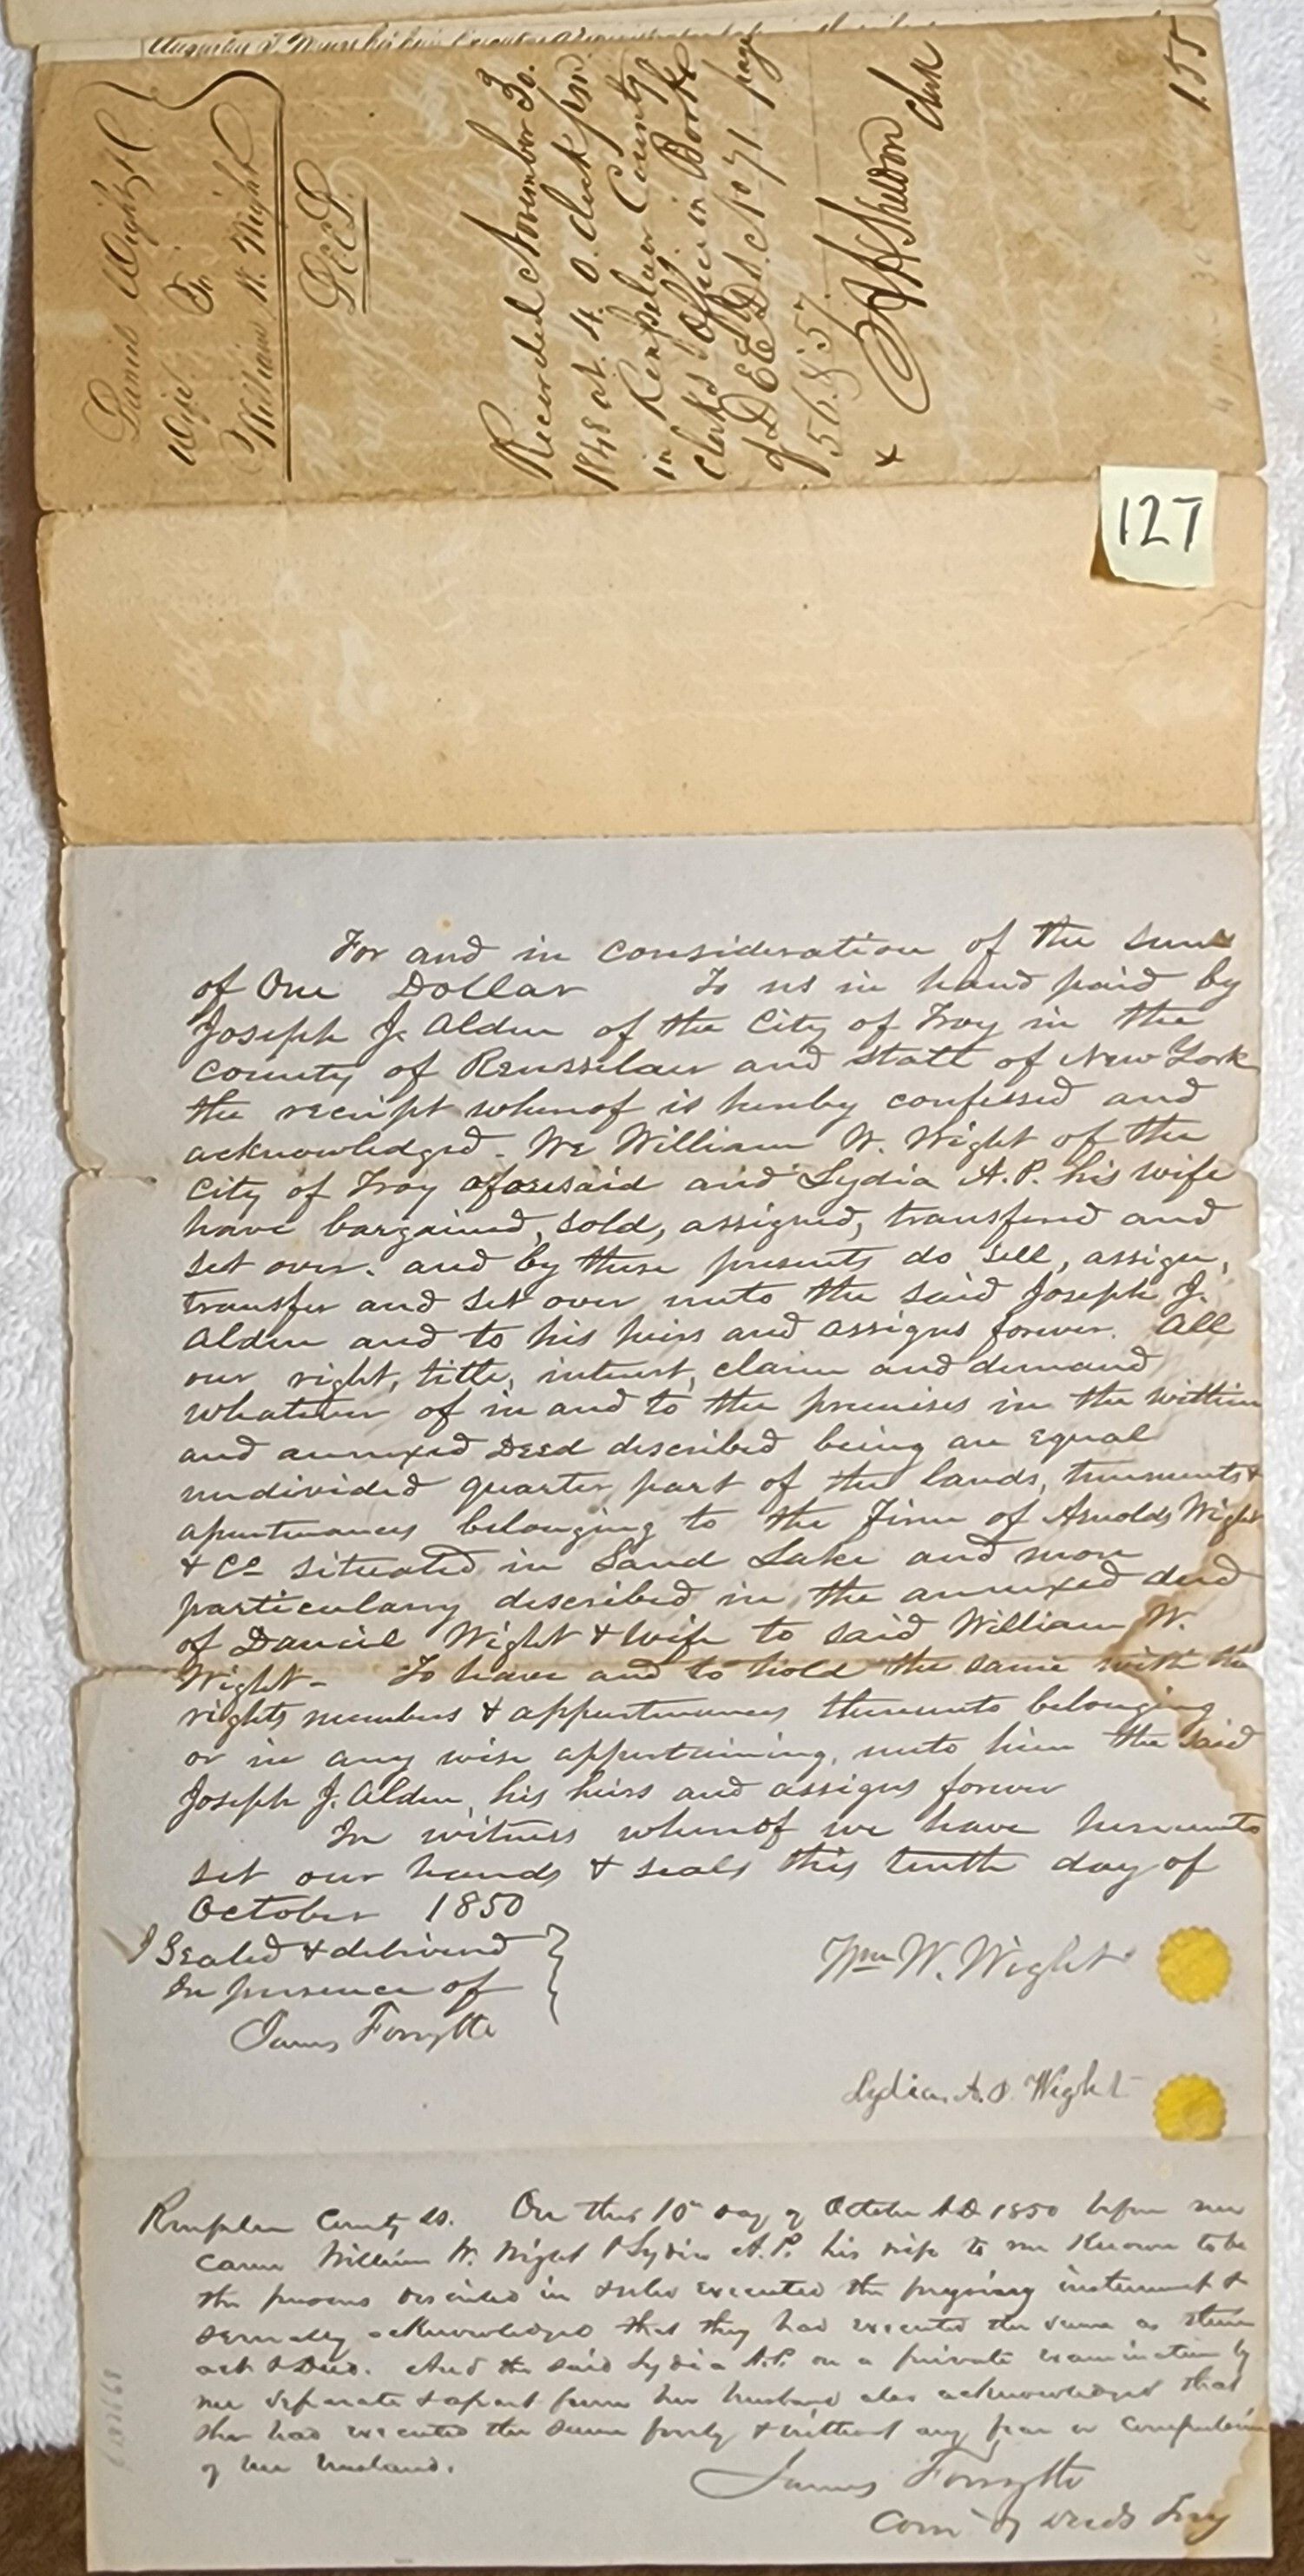 Daniel Wight &
wife
To
William W. Wight
Deed.
Recorded November 30.
1848 at 4 O. clock P.m.
in Rensselaer County
Clerks Office in Book
of DEEDS. No 71 page
156. & 157.
Sheldon Clerk
155
127
For and in consideration of the sum
of One Dollar To us in hand paid by
Joseph J. Alden of the City of Troy in the
County of Rensselaer and state of New York
the receipt whereof is hereby confessed and
acknowledged - We William W. Wight of the
City of Troy aforesaid and Lydia A. P. his wife
have bargained, sold, assigned, transfered and
set over. and by these presents do sell, assign,
transfer and set over unto the said Joseph J.
Alden and to his heirs and assigns forever. All
our right, title, interest, claim and demand
whatever of in and to the premises in the within
and annexed Deed described being an equal
undivided quarter part of the lands, tenements &
apurtenances belonging to the Firm of Arnolds Wight
& Co situated in Sand Lake and more
particulary described in the annexed deed
of Daniel Wight & Wife to said William W.
Wight - To have and to hold the same with the
rights members & appurtenances thereunto belonging
or in any wise appertaining, unto him the said
Joseph J. Alden, his heirs and assigns forever
In witness whereof we have hereunto
set our hands & seals this tenth day of
October 1850
Sealed & delivered
In presence of
James Forsyth
Wm W. Wight
Lydia A. P. Wight
Rensselaer County ss. On this 10 day of October A.D. 1850 before me
came William W. Wight & Lydia A. P. his wife to me known to be
the persons described in & who executed the foregoing instrument &
severally acknowledged that they had executed the same as their
act & Deed. And the said Lydia A. P. on a private examination by
me separate & apart from her husband also acknowledged that
she had executed the same freely & without any fear or compulsion
of her husband.
James Forsyth
Com of deeds Troy